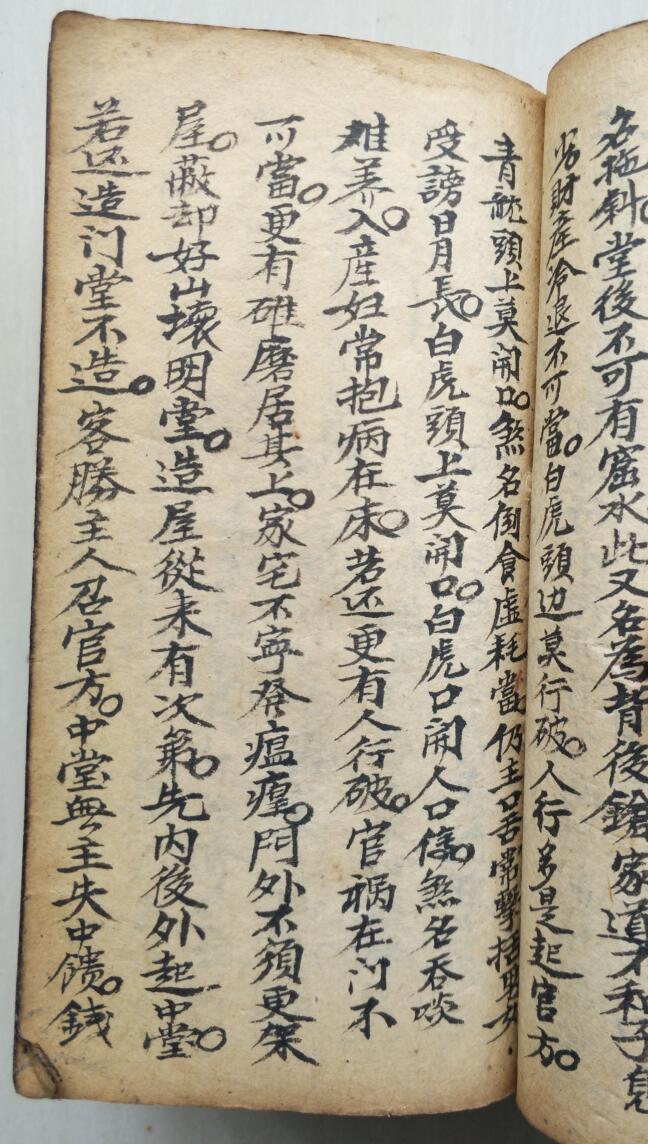 名拖斜堂後不可有窟水此又名為背後鎗家道不和子息
劣財產冷退不可當白虎頭边莫行破人行多是起官方
青龍頭上莫開口煞名倒食虛耗當仍主口舌常擊括男女
受謗日月長白虎頭上莫開口白虎口開人口傷煞名吞啖
难养入産妇常抱病在床若还更有人行破官祸在门不
可當更有碓磨居其上家宅不寧發瘟㾮門外不須更架
屋蔽却好山壞明堂造屋從来有次第先内後外起中堂
若还造门堂不造客勝主人召官方中堂無主失中馈錢